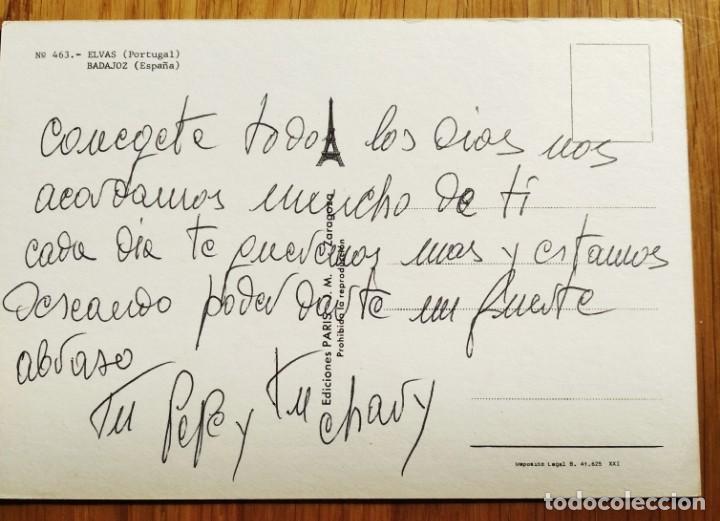 Nº 463.- ELVAS (Portugal)
BADAJOZ (España)
todos los dias nos
acordamos mucho de ti
cada dia te queremos mas y estamos
deseando poder darte un fuerte
abraso
Tu Pepe y Tu chary
Ediciones PARIS J. M. Zaragoza
Prohibida la reproducción
Deposito Legal B. 41.625 XXI
todocoleccion.net